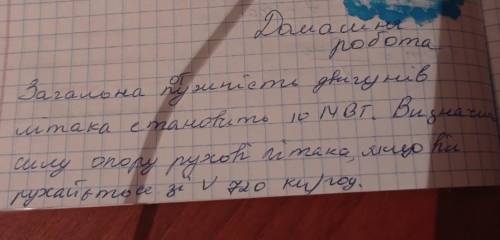 Домашня
робота
Загальна потужність двигунів
літака становить 10 МВт. Визначи
силу опору рухові літака, якщо він
рухається зі V 720 км/год.